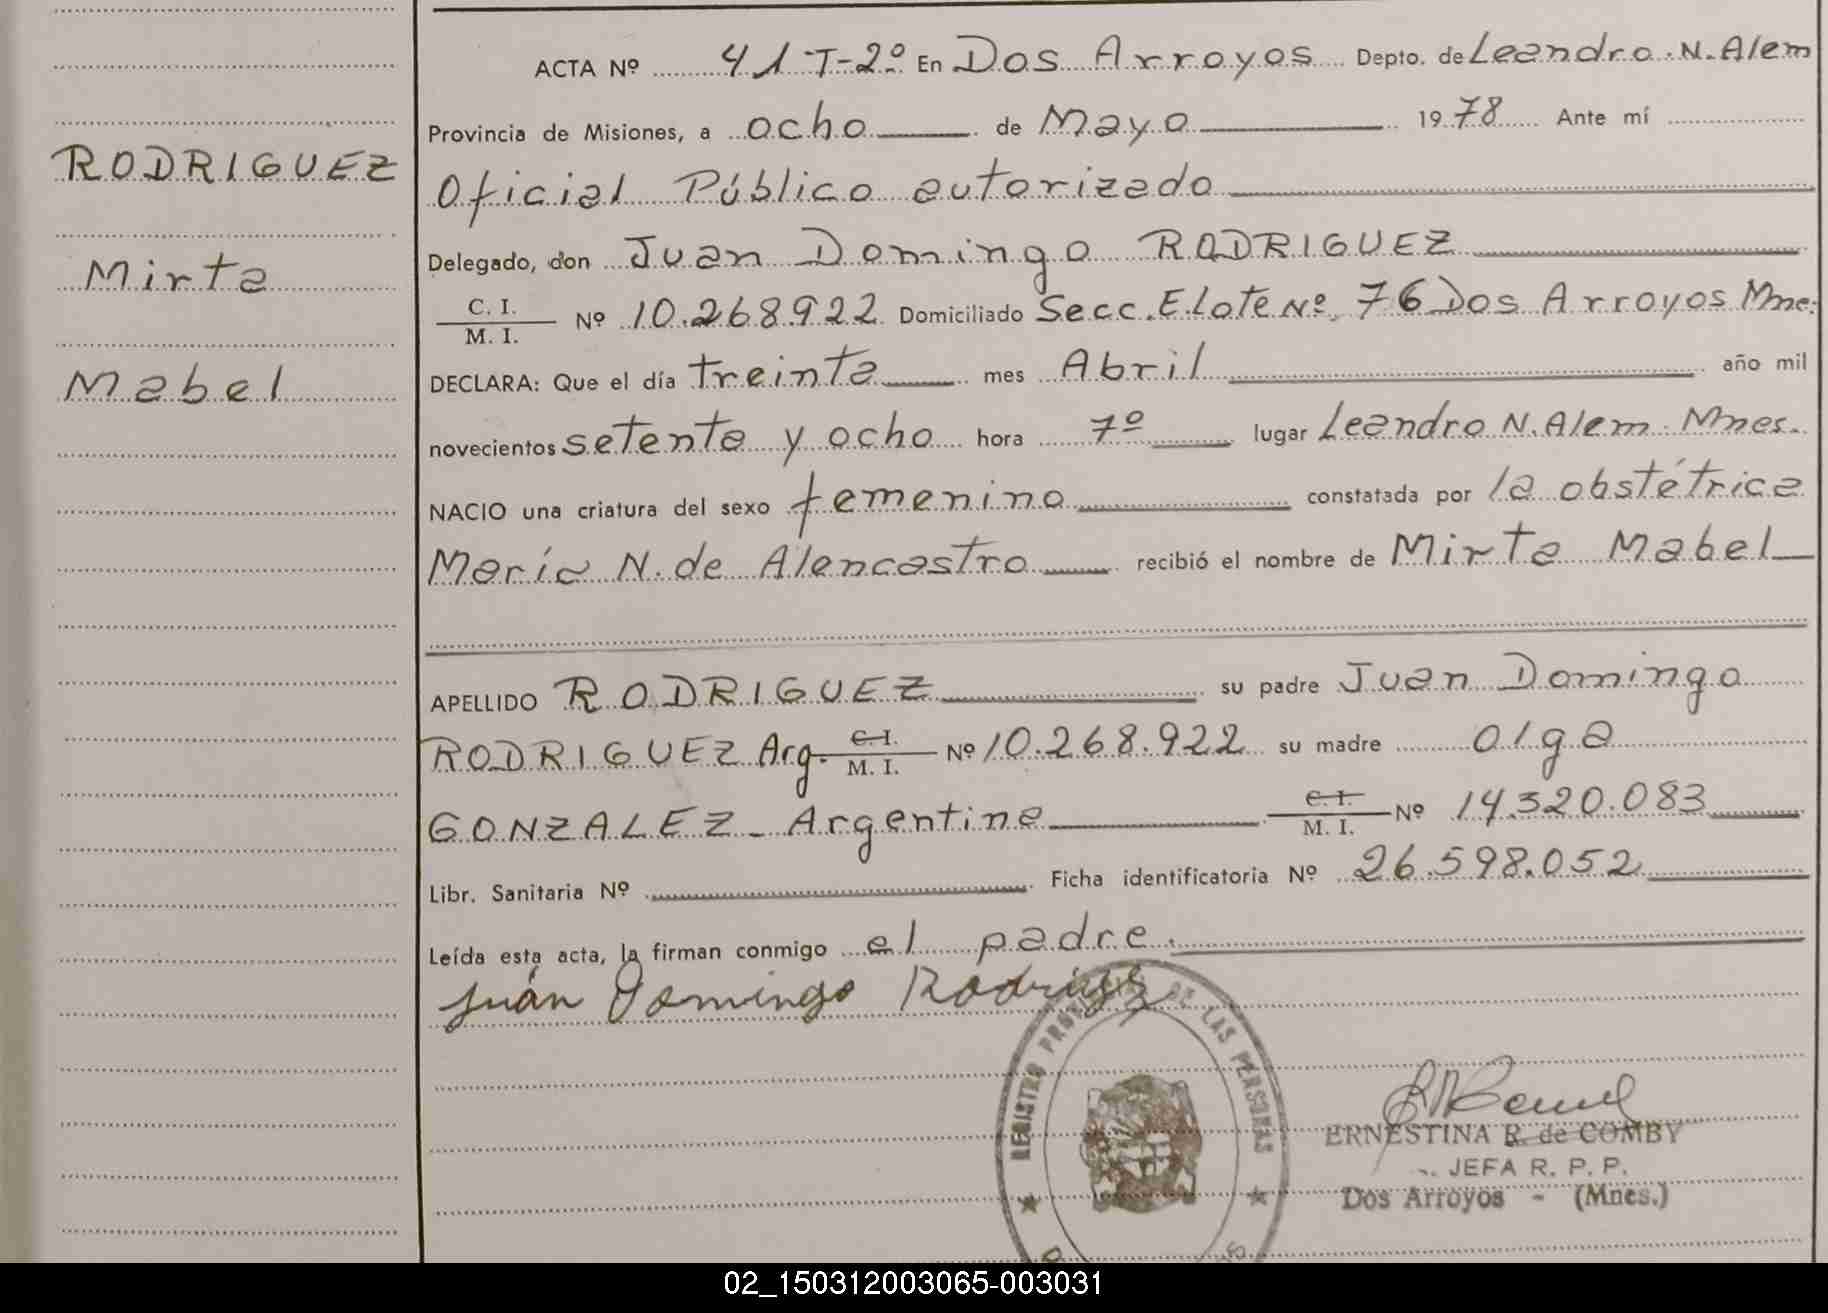 ACTA Nº 41 T-2º En Dos Arroyos Depto. de Leandro N. Alem
Provincia de Misiones, a ocho de Mayo 1978 Ante mí
RODRIGUEZ
Oficial Público autorizado
Delegado, don Juan Domingo RODRIGUEZ
Mirta
C. I.
M. I. Nº 10.268.922 Domiciliado Secc. E. Lote Nº 76 Dos Arroyos Mnes.
Mabel
DECLARA: Que el día treinta mes Abril año mil
novecientos setenta y ocho hora 7º lugar Leandro N. Alem. Mnes.
NACIO una criatura del sexo femenino constatada por la obstétrica
María N. de Alencastro recibió el nombre de Mirta Mabel
APELLIDO RODRIGUEZ su padre Juan Domingo
RODRIGUEZ Arg. C. I.
M. I. Nº 10.268.922 su madre Olga
GONZALEZ - Argentina C. I.
M. I. Nº 14.320.083
Libr. Sanitaria Nº Ficha identificatoria Nº 26.598.052
Leída esta acta, la firman conmigo el padre.
Juán Domingo Rodriguez
REGISTRO DE LAS PERSONAS
ERNESTINA R. de COMBY
JEFA R. P. P.
Dos Arroyos - (Mnes.)
02_150312003065-003031